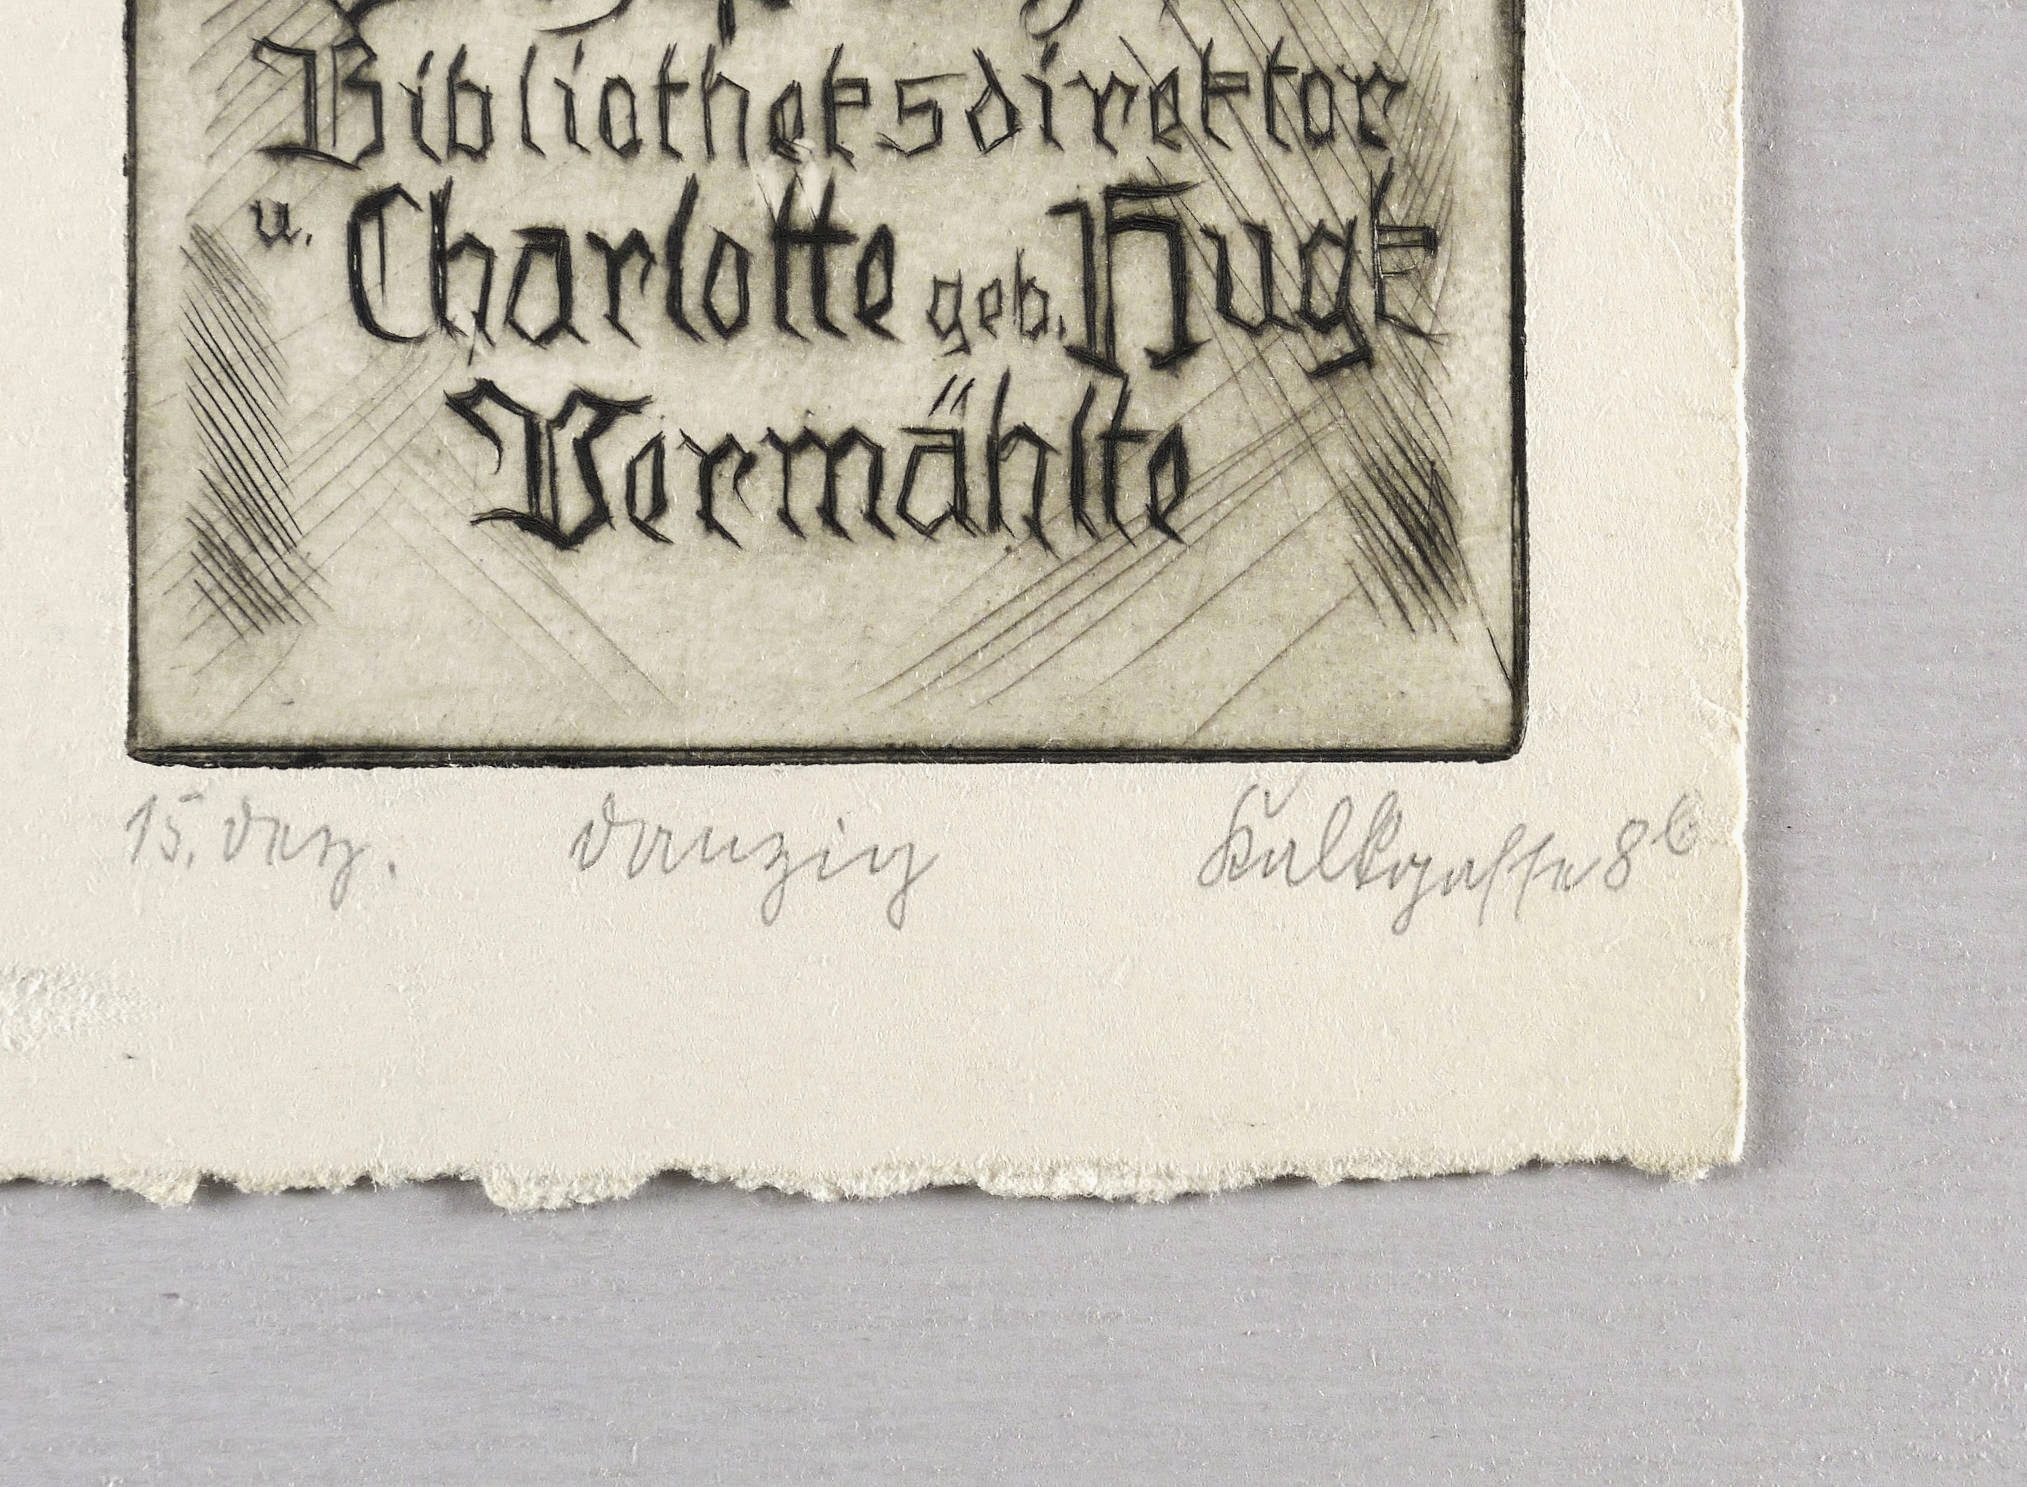 Bibliotheksdirektor
u. Charlotte geb. Hugk
Vermählte
15. Dez. Danzig Kalkgasse 8b